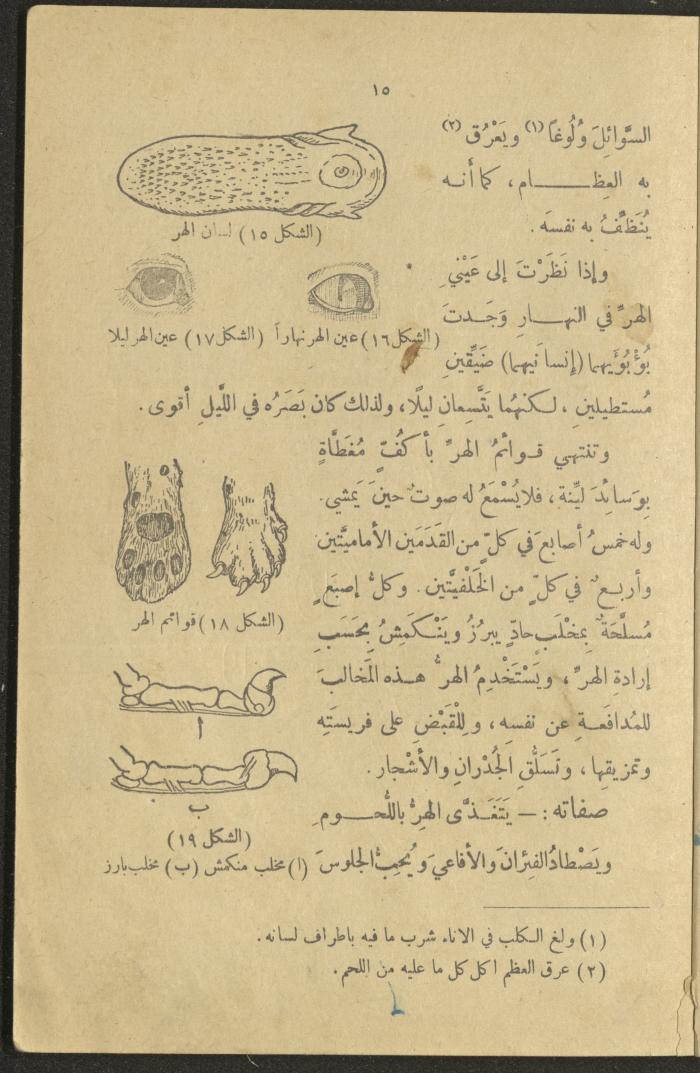 ١٥
السَّوائِلَ وُلُوغاً (١) ويَعْرُق (٢)
به العِظـــــام، كما أنه
يُنَظِّفُ به نفسَه.
(الشكل ١٥) لسان الهر
وإذا نَظَرْتَ إلى عَيْنيِ
الهرِّ في النهـــارِ وَجَدتَ
بُؤْبُؤَيهما (إنسانَيهما) ضَيِّقينِ
(الشكل ١٦) عين الهر نهاراً (الشكل ١٧) عين الهر ليلا
مُستطيلينِ، لكنهُما يَتَّسِعانِ ليلًا، ولذلك كان بَصَرُه في اللَّيلِ أقوى.
وتنتهي قوائمُ الهرِّ بأكُفٍّ مُغَطَّاةٍ
بِوَسائِدَ ليِّنة، فلا يُسْمَعُ له صوتٌ حينَ يَمشي.
وله خمسُ أصابعَ في كلٍّ من القَدَمَين الأماميَّتين
وأربعٌ في كلٍّ من الخَلْفيَّتين. وكلُّ إصبَعٍ
(الشكل ١٨) قوائم الهر
مُسلَّحَةٌ بِمخْلَبٍ حادٍّ يبرُزُ ويَنْكَمِشُ بِحَسَبِ
إرادةِ الهرِّ، ويَسْتَخْدِمُ الهرُّ هــذه المَخالبَ
للمُدافَعــةِ عن نفسِه، ولِلْقَبْضِ على فريستِهِ
وتمزيقِها، وتَسَلُّقِ الجُدْرانِ والأشْجار.
أ
ب
صفاته: — يَتَغَــذَّى الهِرُّ باللُّحــومِ
(الشكل ١٩)
ويَصْطادُ الفِئرانَ والأفاعيَ ويُحِبُّ الجلوسَ
(ا) مخلب منكمش (ب) مخلب بارز
(١) ولغ الكلب في الاناء شرب ما فيه باطراف لسانه.
(٢) عرق العظم اكل كل ما عليه من اللحم.